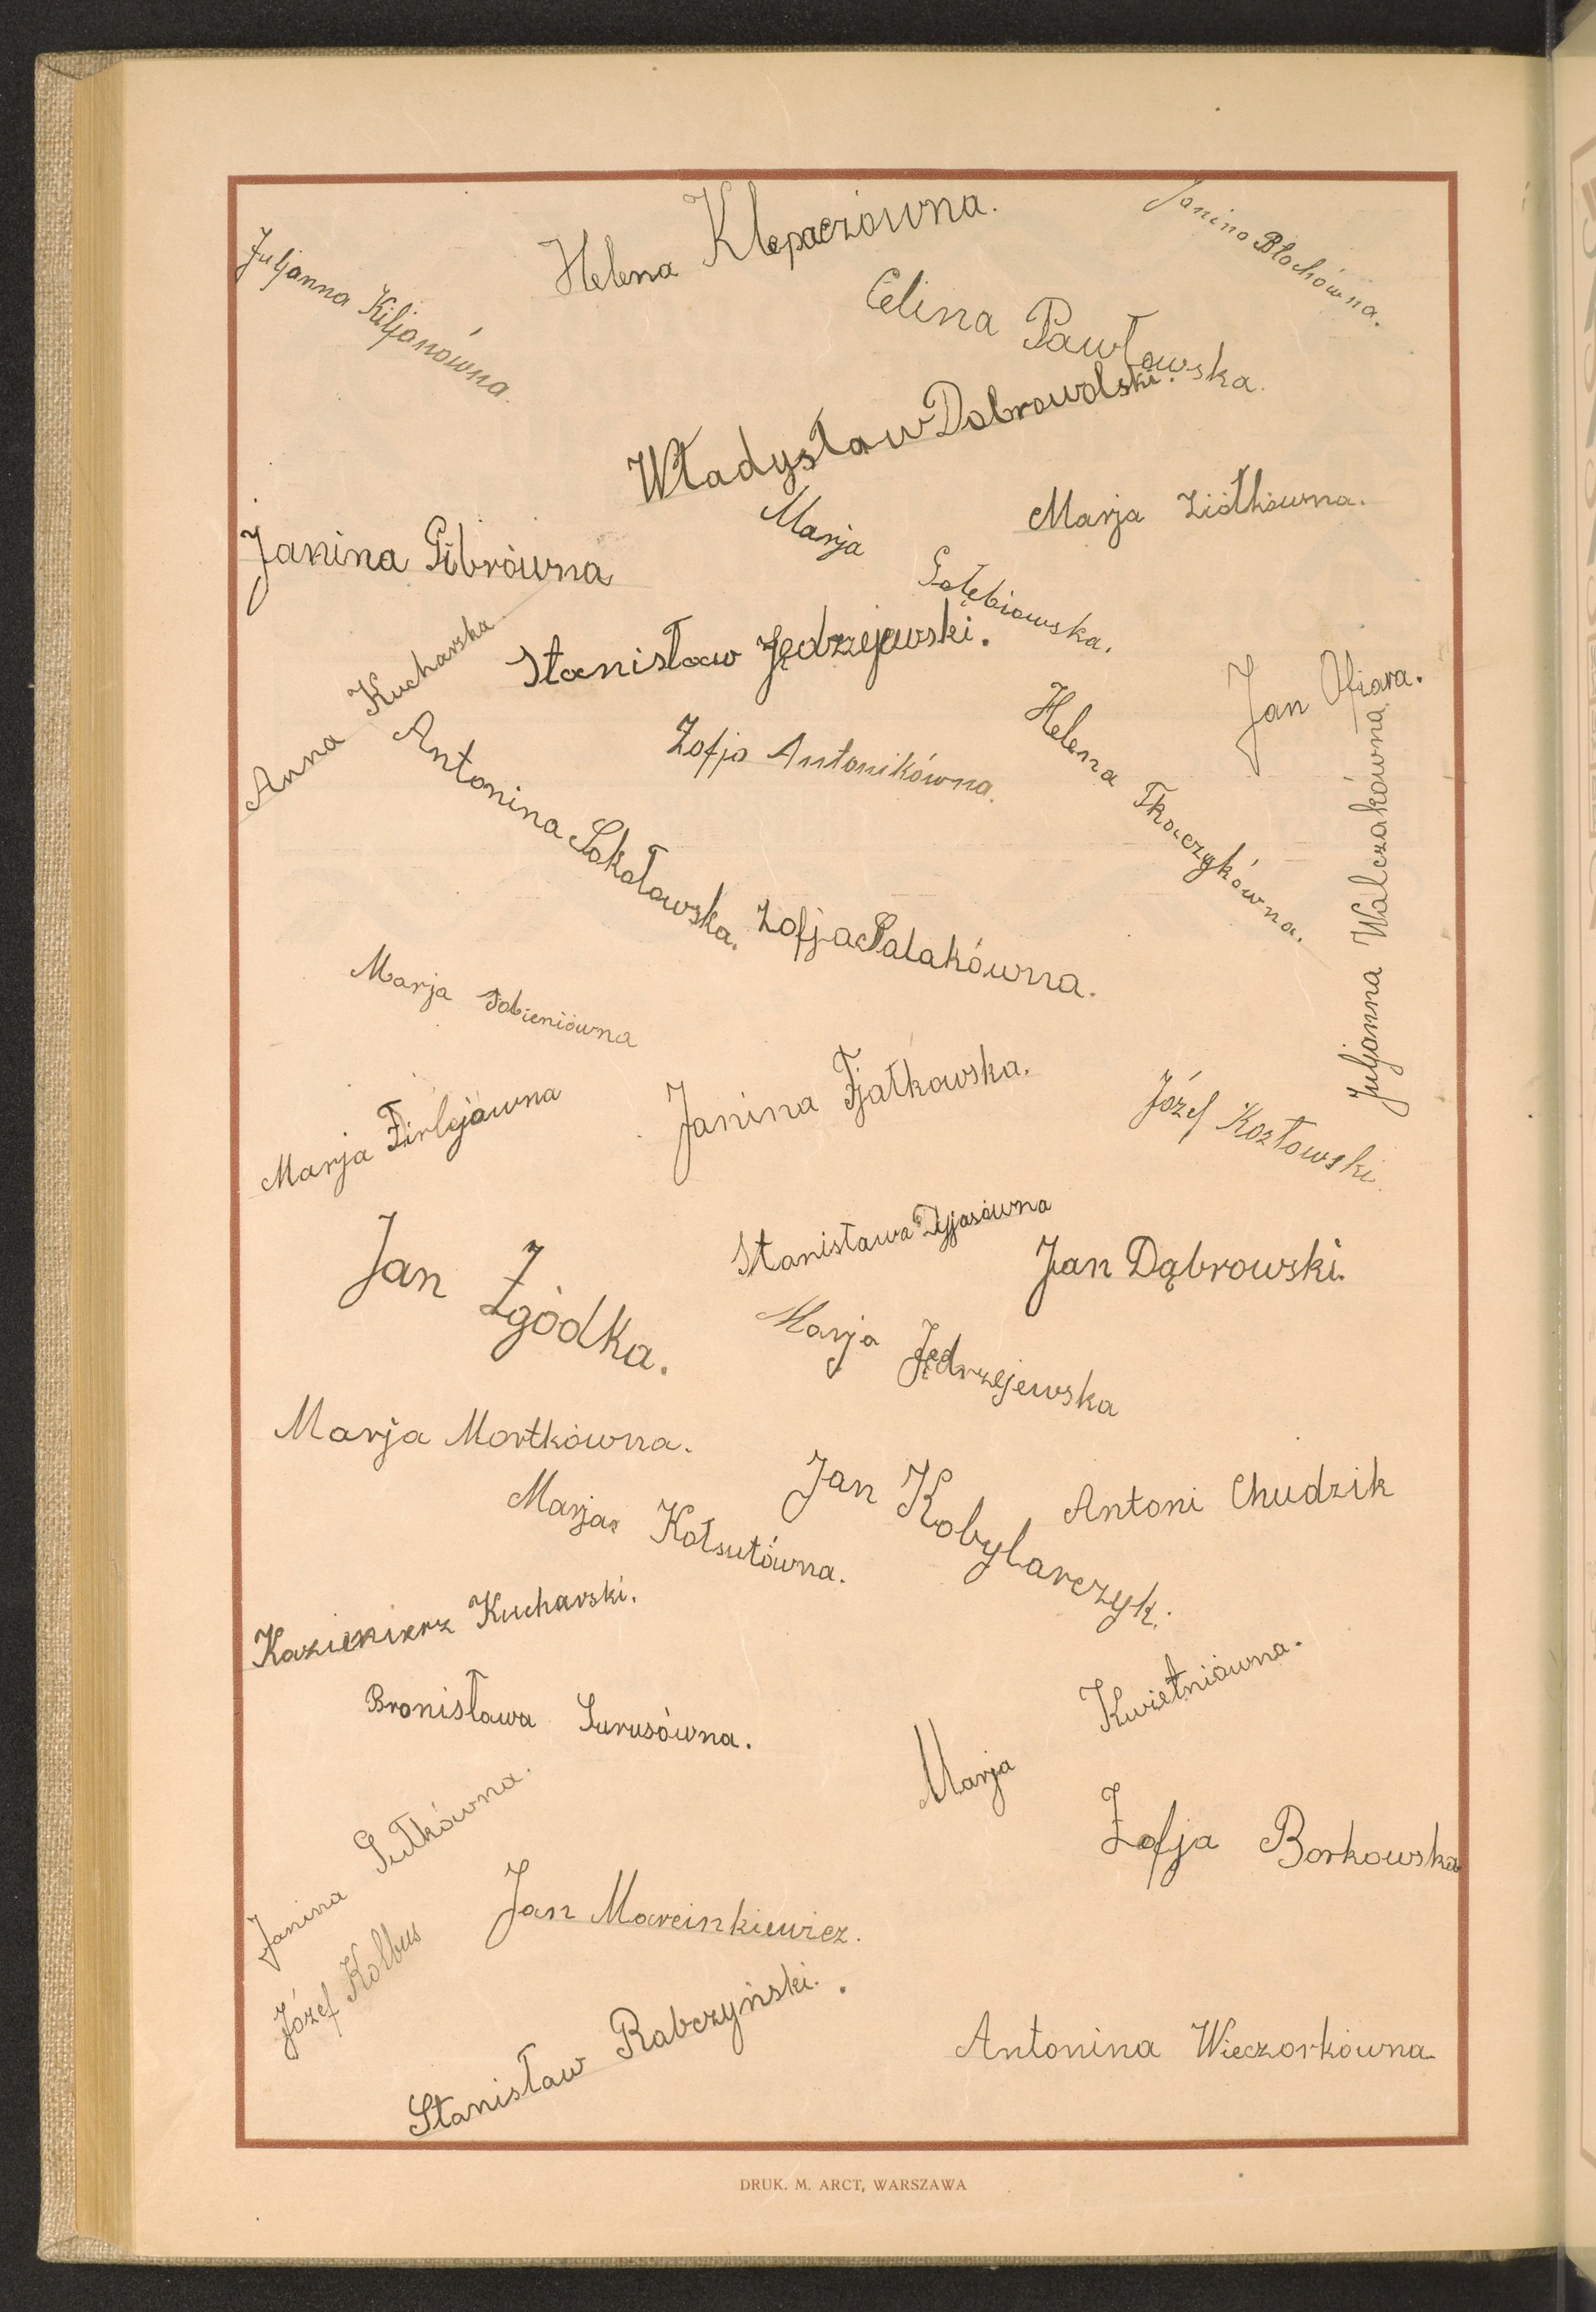 Helena Klepaczówna.
Janina Błochówna.
Juljanna Kiljanówna.
Celina Pawłowska.
Władysław Dobrowolski.
Marja Ziółkówna.
Marja Gołębiowska.
Janina Gibrówna
Stanisław Jędrzejewski.
Anna Kucharska
Jan Ofiara.
Helena Tkaczykówna.
Zofja Antonikówna.
Antonina Sokołowska.
Juljanna Walczakówna
Zofja Salakówna.
Marja Tobieniówna
Janina Fjałkowska.
Józef Kozłowski.
Marja Firlejówna
Stanisława Dyjasówna
Jan Dąbrowski.
Jan Zgódka.
Marja Jędrzejewska
Marja Mortkówna.
Jan Kobylarczyk.
Antoni Chudzik
Marja Kołsutówna.
Kazimierz Kucharski.
Marja Kwietniówna.
Bronisława Surusówna.
Janina Gutkówna.
Zofja Borkowska
Jan Marcinkiewicz.
Józef Kolbus
Stanisław Rabczyński.
Antonina Wieczorkówna
DRUK. M. ARCT, WARSZAWA